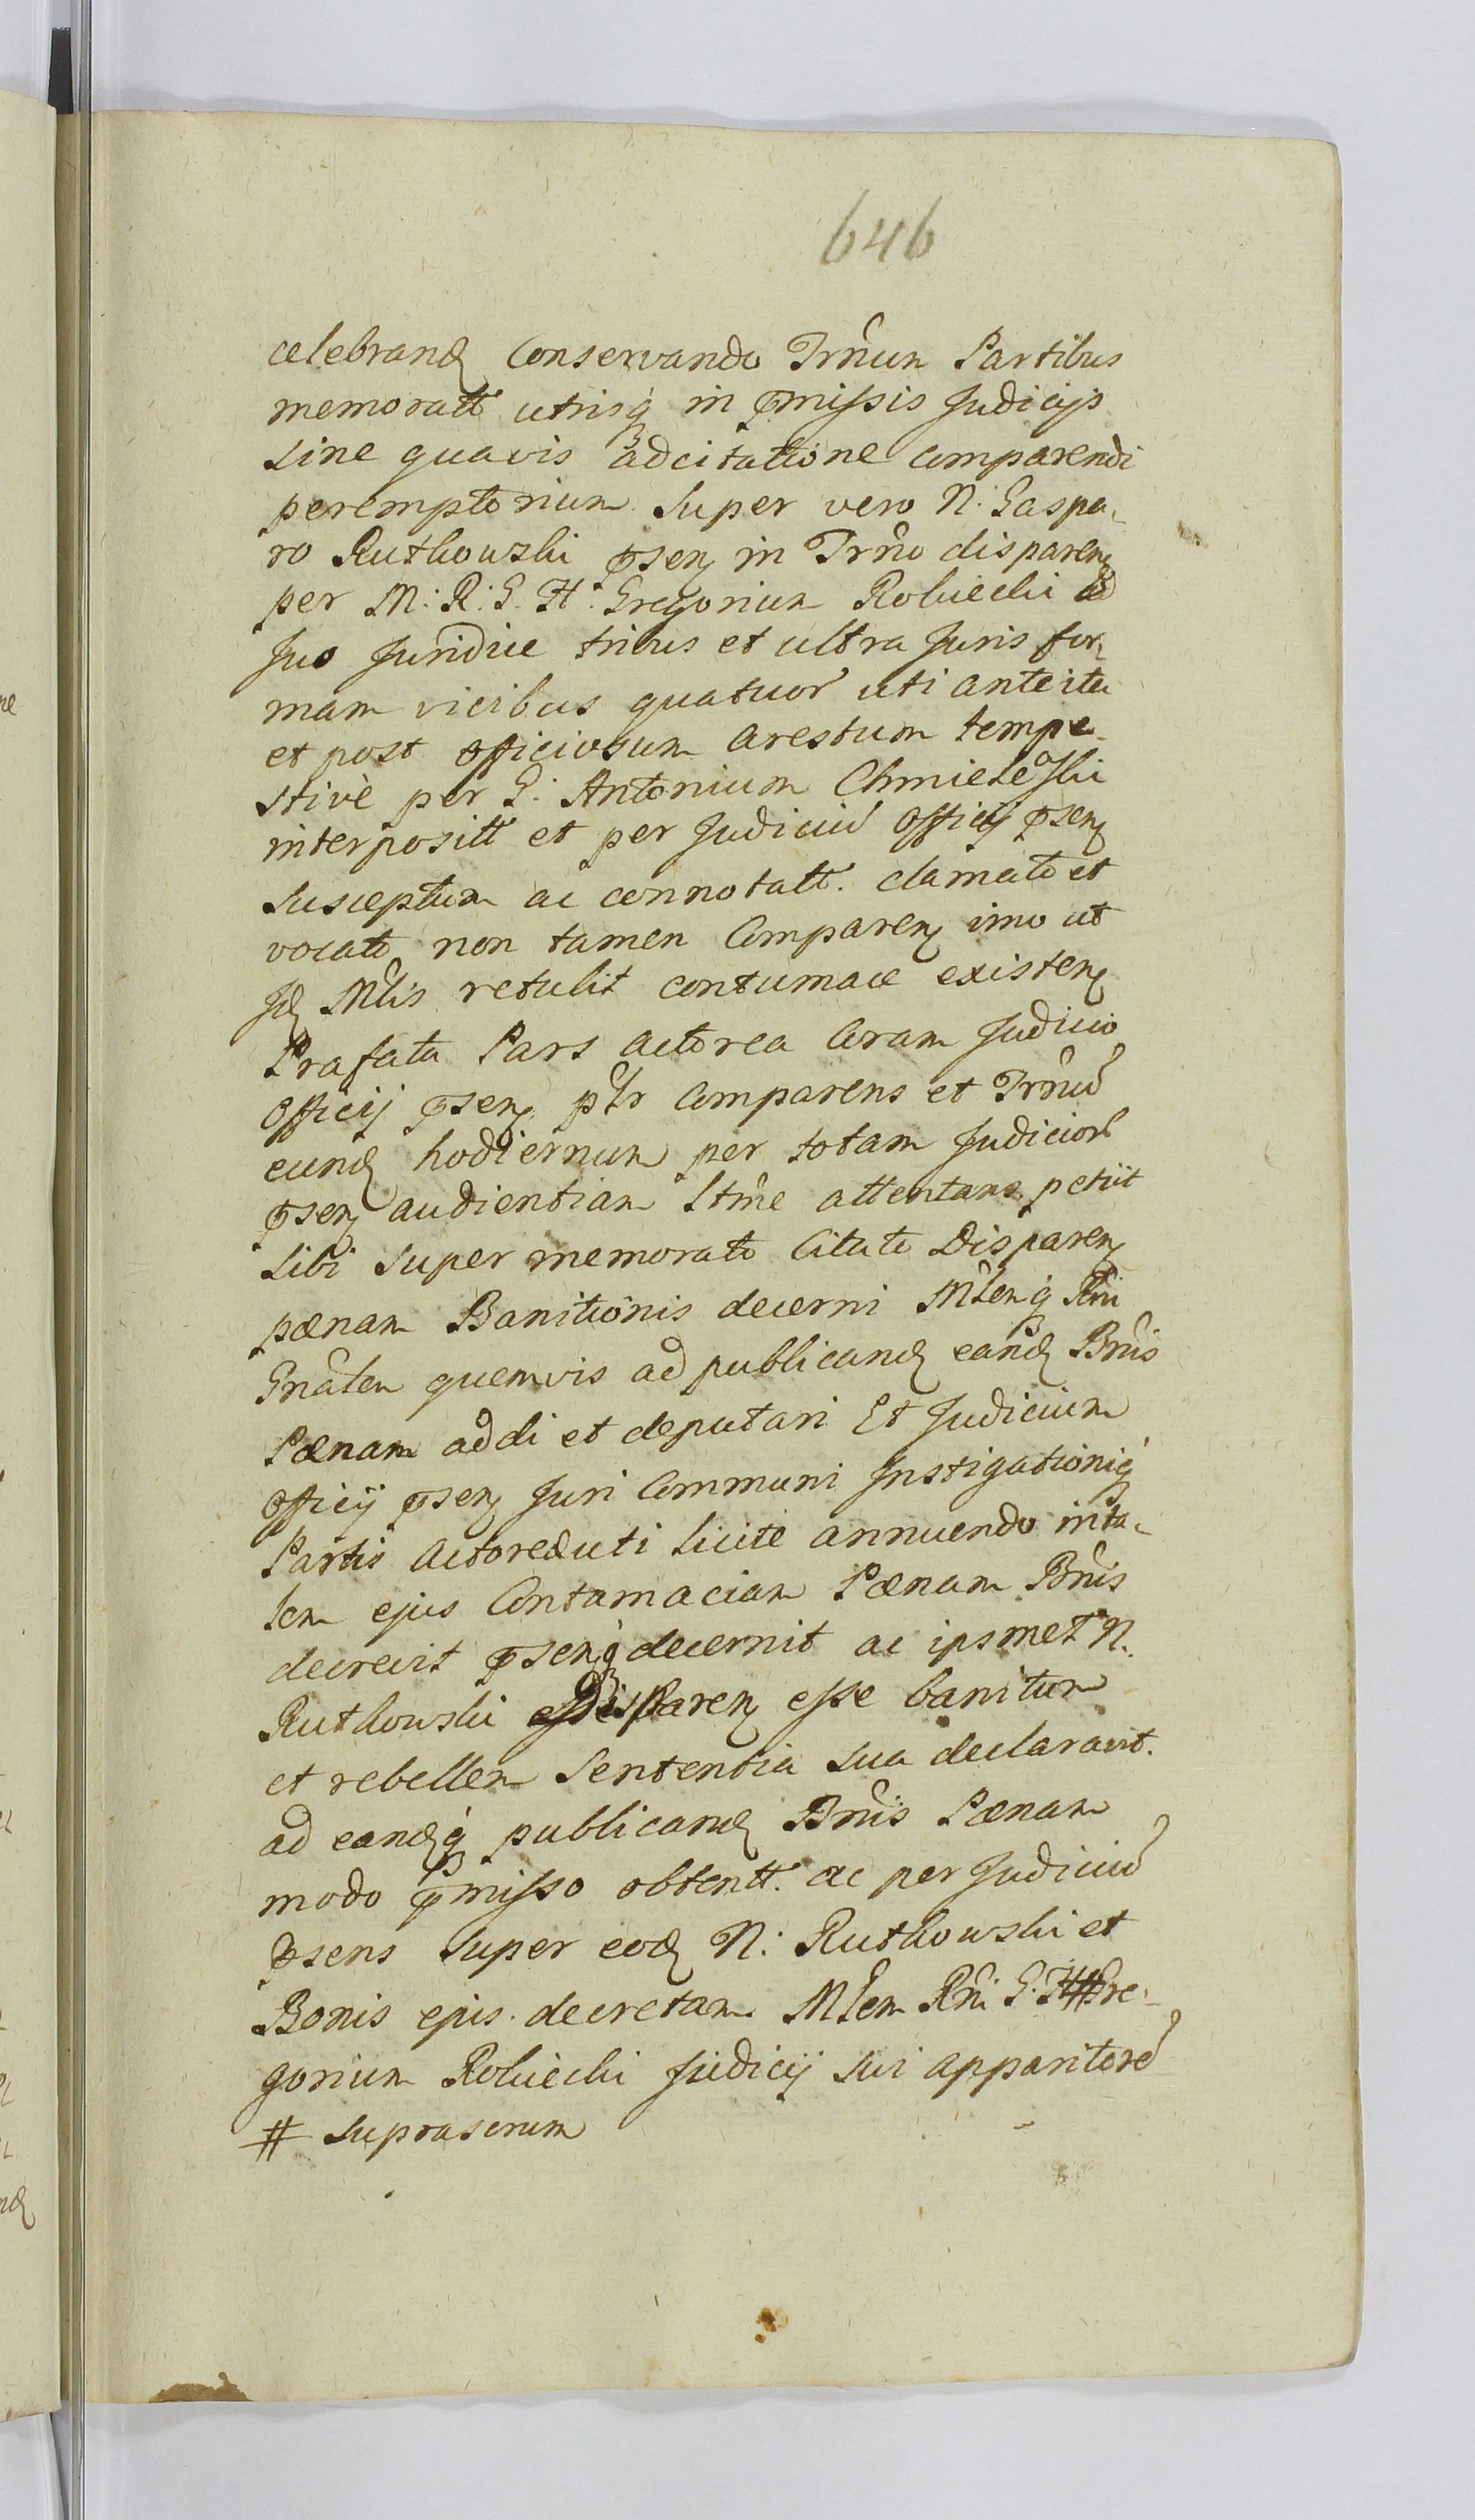 646
celebrand Conservando Trnum Partibus
memoratt utrisq in pmissis Judicijs
sine quavis adcitatione comparendi
peremptorium Super vero N. Gaspa-
ro Rutkowski psen in Trno disparen
per M: R: G. H. Gregorium Robiecki
suo Juridice tribus et ultra Juris for-
mam vicibus quatuor uti ante ita
et post officiosum arestum tempe-
stivè per G. Antonium Chmieleski
interpositt et per Judiciu Officij psen
susceptum ac connotatt. clamato et
vocato non tamen Comparen imo ut
Jd Mlis retulit contumace existen
Prafata Pars actorea Coram Judicio
Officij psen pltr Comparens et Trnu
eund hodiernum per totam Judicior
psen audientiam Ltme attentans petiit
sibi super memorato Citato Disparen
pænam Banitionis decerni Mlenq Rni
Gnalem quemvis ad publicand eand Bnis
Pænam addi et deputari Et Judicium
Officij psen Juri Communi Instigationiq
Partis Actoreæ uti licite annuendo in ta-
lem ejus Contamaciam Pænam Bnis
decrevit psenq decernit ac ipsmet N.
Rutkowski Disparen esse banitum
et rebellem Sententia sua declaravit.
ad eandq publicand Bnis Pænam
modo pmisso obtentt. ac per Judiciu
psens super eod N: Rutkowski et
Bonis ejus decretam Mlem Rni G. H # Gre-
gorium Robiecki Judicij sui apparitore
# suprascrum